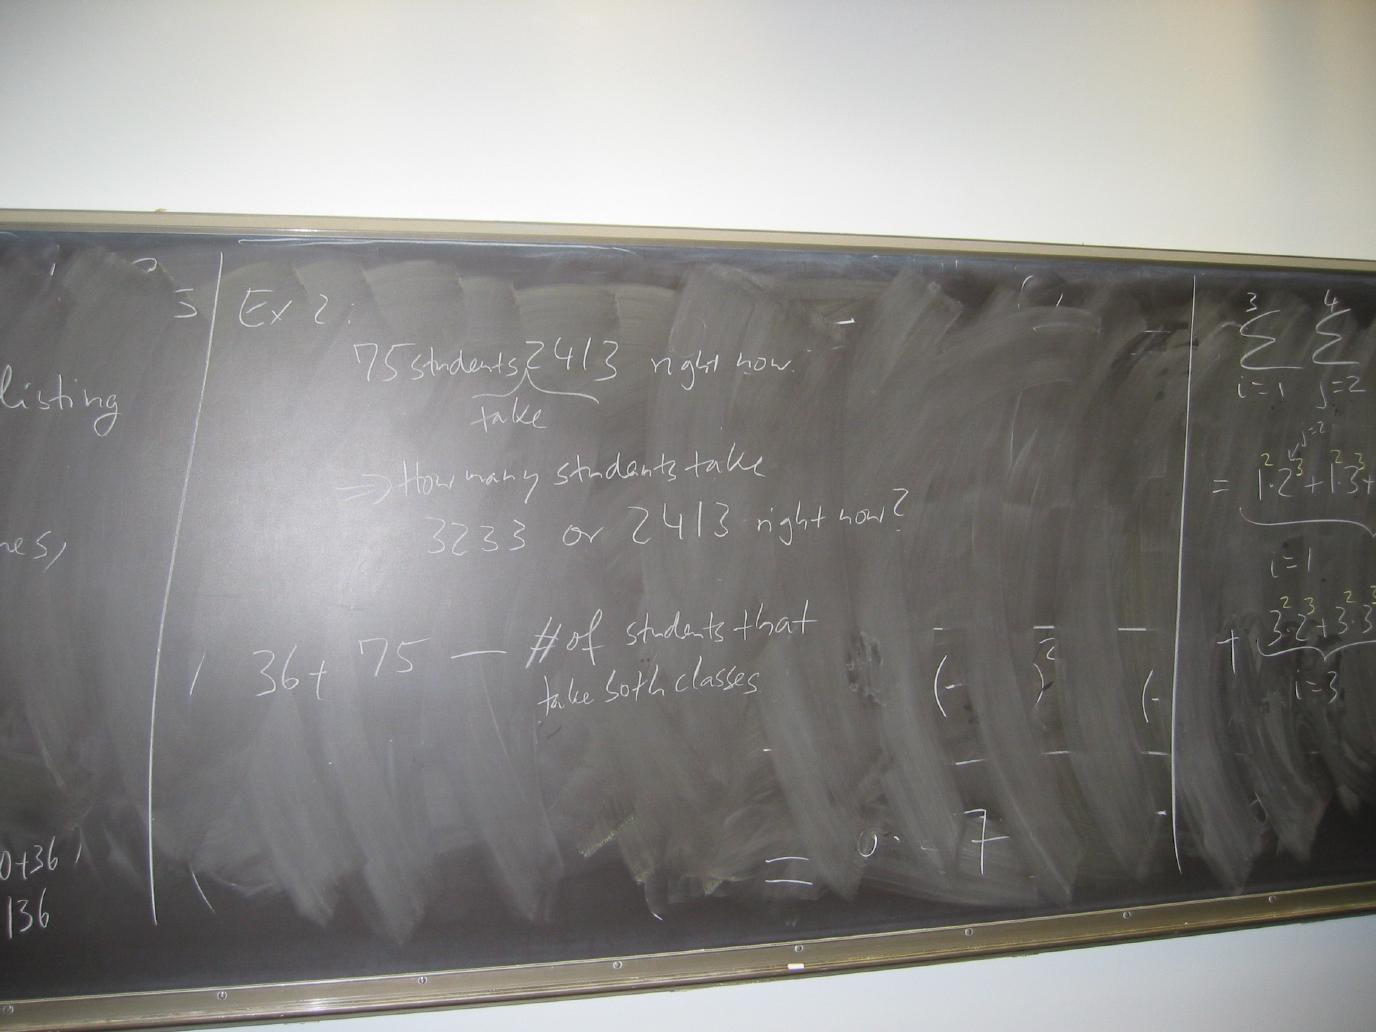 5
listing
nes,
0+36
136
Ex 2:
75 students 2413 right now.
take
⇒ How many students take
3233 or 2413 right now?
36 + 75 — # of students that
take both classes
( - )² ( -
= 7
3 4
Σ Σ
i=1 j=2
j=2
= 1²·2³ + 1²·3³ +
i=1
+ 3²·2³ + 3²·3³
i=3